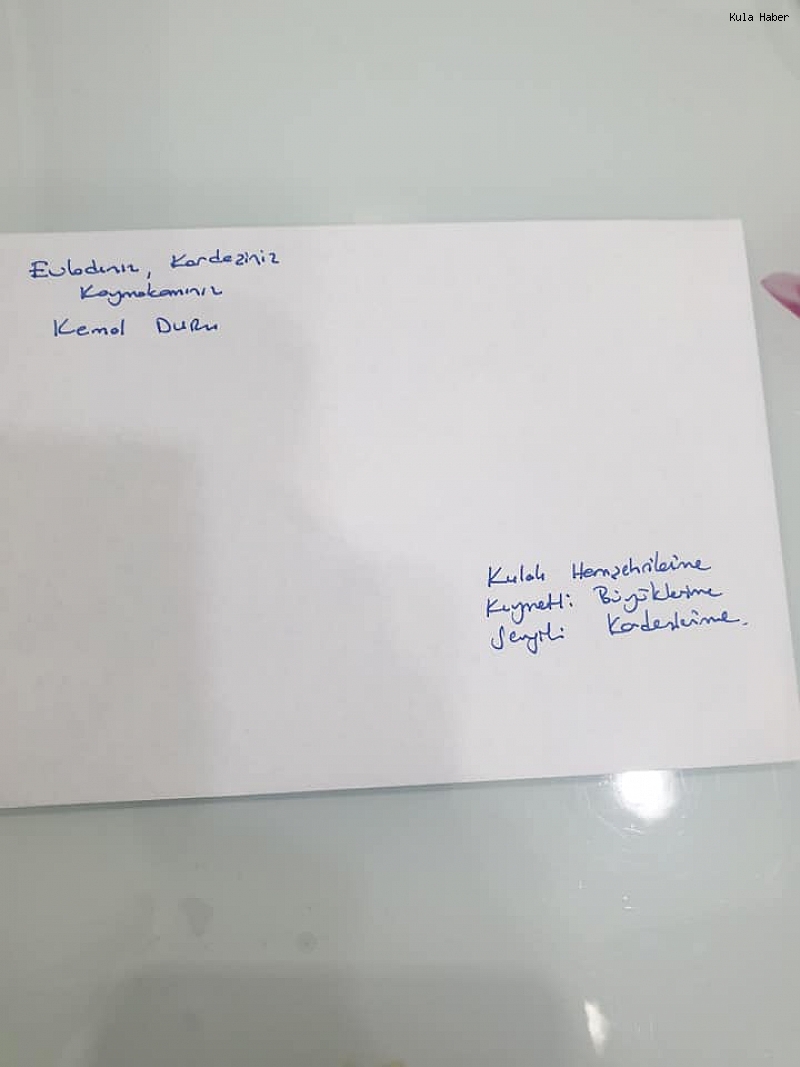 Kula Haber
Evladınız, Kardeşiniz
Kaymakamınız
Kemal DURU
Kulalı Hemşehrilerime
Kıymetli Büyüklerime
Sevgili Kardeşlerime.